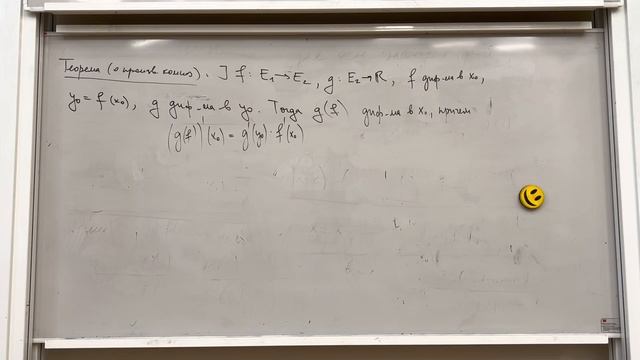 Теорема (о произв. композ.). ] f: E₁→E₂, g: E₂→ℝ, f диф-ма в x₀,
y₀ = f(x₀), g диф-ма в y₀. Тогда g(f) диф-ма в x₀, причем
(g(f))'(x₀) = g'(y₀)·f'(x₀)